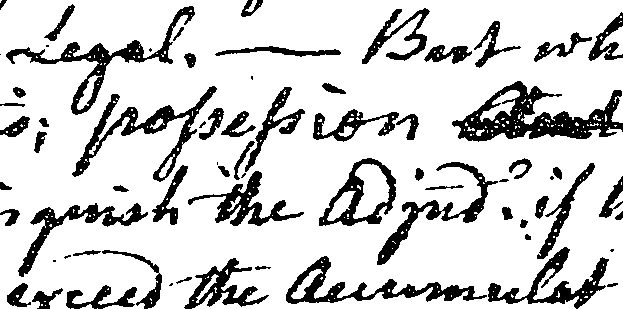 Legal. — But wh
is; possession
nguish the Adjud.? if th
exceed the Accumulat